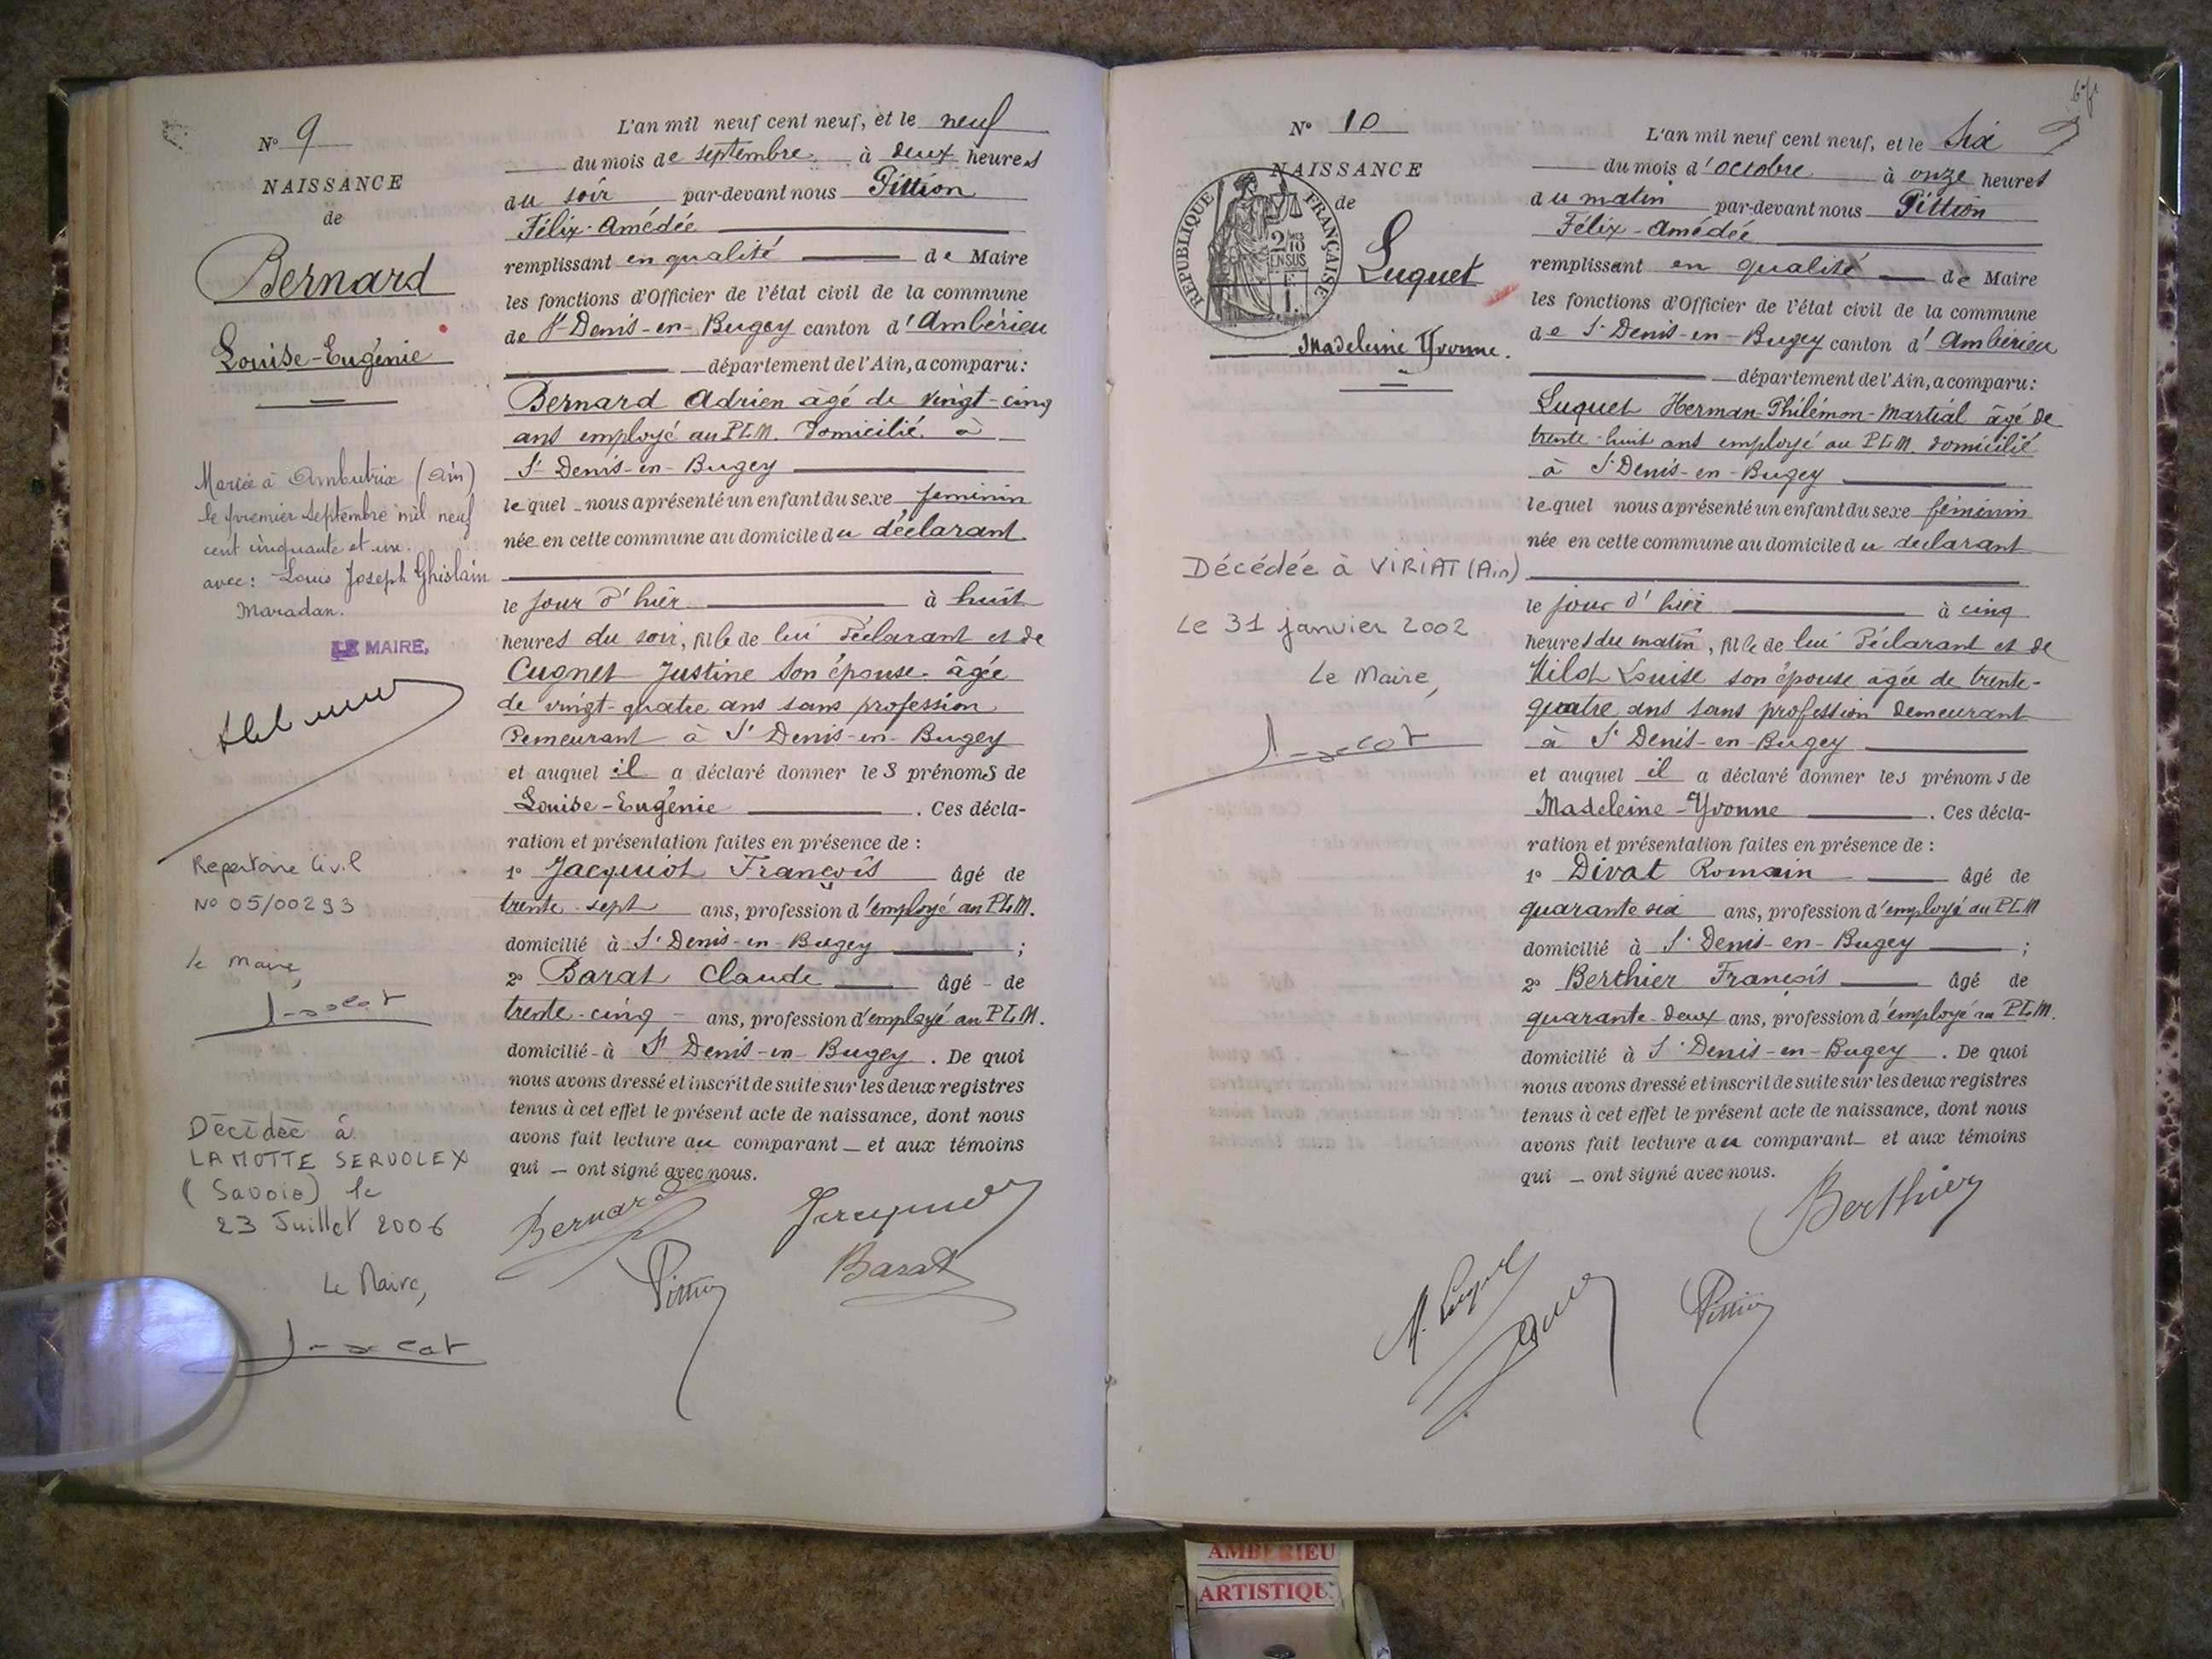 N° 9
NAISSANCE
de
Bernard
Louise-Eugénie
Mariée à Ambutrix (Ain)
le premier septembre mil neuf
cent cinquante et un.
avec: Louis Joseph Ghislain
Maradan.
LE MAIRE,
Repertoire Civil
N° 05/00293
le maire,
Décédée à
LA MOTTE SERVOLEX
(Savoie) le
23 Juillet 2006
Le Maire,
L'an mil neuf cent neuf, et le neuf
du mois de septembre à deux heures
du soir par-devant nous Pittion
Félix-Amédée
remplissant en qualité de Maire
les fonctions d'Officier de l'état civil de la commune
de St Denis-en-Bugey canton d'Ambérieu
département de l'Ain, a comparu:
Bernard Adrien âgé de vingt-cinq
ans employé au PLM. domicilié à
St Denis-en-Bugey
lequel nous a présenté un enfant du sexe féminin
née en cette commune au domicile du déclarant
le jour d'hier à huit
heures du soir, fille de lui déclarant et de
Cugnet Justine son épouse âgée
de vingt-quatre ans sans profession
demeurant à St Denis-en-Bugey
et auquel il a déclaré donner les prénoms de
Louise-Eugénie. Ces décla-
ration et présentation faites en présence de :
1° Jacquiot François âgé de
trente-sept ans, profession d'employé au PLM.
domicilié à St Denis-en-Bugey ;
2° Barat Claude âgé de
trente-cinq ans, profession d'employé au PLM.
domicilié à St Denis-en-Bugey. De quoi
nous avons dressé et inscrit de suite sur les deux registres
tenus à cet effet le présent acte de naissance, dont nous
avons fait lecture au comparant et aux témoins
qui ont signé avec nous.
Bernard
Barat
Pittion
N° 10
NAISSANCE
de
RÉPUBLIQUE FRANÇAISE
2/10 EN SUS
Luquet
Madeleine Yvonne.
Décédée à VIRIAT (Ain)
Le 31 janvier 2002
Le Maire,
L'an mil neuf cent neuf, et le six
du mois d'octobre à onze heures
du matin par-devant nous Pittion
Félix-Amédée
remplissant en qualité de Maire
les fonctions d'Officier de l'état civil de la commune
de St Denis-en-Bugey canton d'Ambérieu
département de l'Ain, a comparu:
Luquet Herman-Philémon-Martial âgé de
trente-huit ans employé au PLM. domicilié
à St Denis-en-Bugey
lequel nous a présenté un enfant du sexe féminin
née en cette commune au domicile du déclarant
le jour d'hier à cinq
heures du matin, fille de lui déclarant et de
Hild Louise son épouse âgée de trente-
quatre ans sans profession demeurant
à St Denis-en-Bugey
et auquel il a déclaré donner les prénoms de
Madeleine-Yvonne. Ces décla-
ration et présentation faites en présence de :
1° Divat Romain âgé de
quarante six ans, profession d'employé au PLM
domicilié à St Denis-en-Bugey ;
2° Berthier François âgé de
quarante-deux ans, profession d'employé au PLM.
domicilié à St Denis-en-Bugey. De quoi
nous avons dressé et inscrit de suite sur les deux registres
tenus à cet effet le présent acte de naissance, dont nous
avons fait lecture au comparant et aux témoins
qui ont signé avec nous.
Berthier
Pittion
AMBERIEU
ARTISTIQU